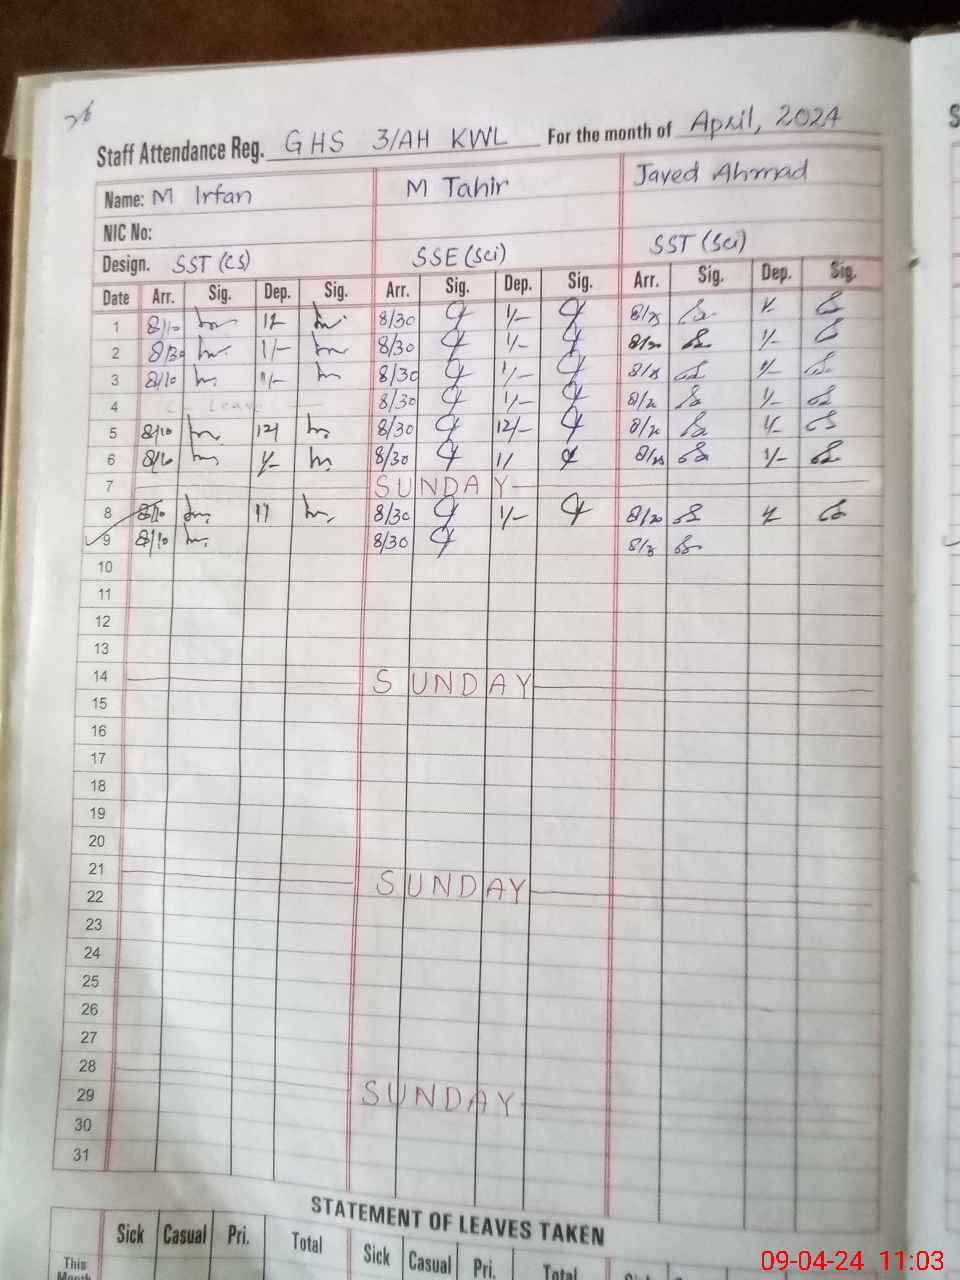 26
Staff Attendance Reg. GHS 3/AH KWL For the month of April, 2024
Name: M Irfan M Tahir Javed Ahmad
NIC No:
Design. SST (CS) SSE (Sci) SST (Sci)
Date Arr. Sig. Dep. Sig. Arr. Sig. Dep. Sig. Arr. Sig. Dep. Sig.
1 8/10 12 8/30 1/-
2 8/30 1/- 8/30 1/- 1/-
3 8/10 1/- 8/30 1/- 1/-
4 Leave 8/30 1/- 1/-
5 8/10 12/ 8/30 12/- 8/20
6 8/10 1/- 8/30 1/ 1/-
7 SUNDAY
8 8/10 8/30 1/- 8/20
9 8/10 8/30
10
11
12
13
14 SUNDAY
15
16
17
18
19
20
21 SUNDAY
22
23
24
25
26
27
28 SUNDAY
29
30
31
STATEMENT OF LEAVES TAKEN
Sick Casual Pri. Total Sick Casual Pri. Total
This
Month
09-04-24 11:03